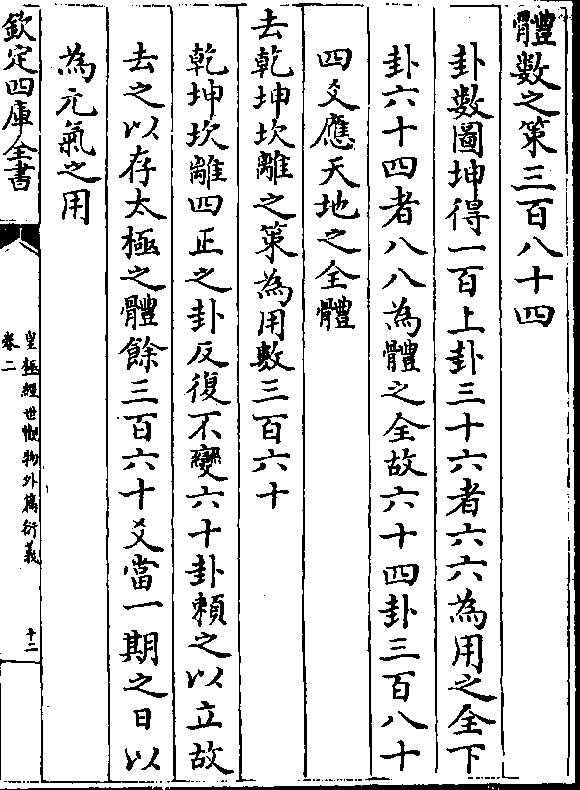 體數之策三百八十四
卦數圖坤得一百上卦三十六者六六為用之全下
卦六十四者八八為體之全故六十四卦三百八十
四爻應天地之全體
去乾坤坎離之策為用數三百六十
乾坤坎離四正之卦反復不變六十卦賴之以立故
去之以存太極之體餘三百六十爻當一期之日以
為元氣之用
欽定四庫全書
皇極經世觀物外篇衍義
卷二
十二